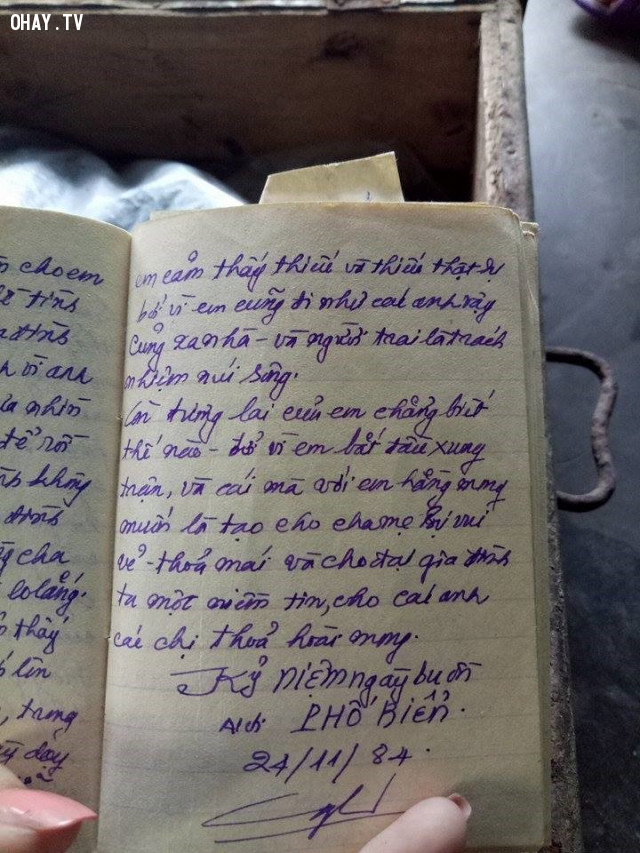 OHAY.TV
cho em
tình
đình
vì anh
nhìn
để rồi
không
đình
cha
lo lắng.
thấy
lên
, trung
dạy
em cảm thấy thiếu và thiếu thật sự
bởi vì em cũng đi như các anh vậy
Cũng xa nhà - và người trai là trách
nhiệm núi sông.
Còn tương lai của em chẳng biết
thế nào - bởi vì em bắt đầu xung
trận, và cái mà với em hằng mong
muốn là tạo cho cha mẹ vui
vẻ - thoả mái và cho đại gia đình
ta một niềm tin, cho các anh
các chị thoả hoài mong.
Kỷ niệm ngày buồn
PHỐ BIỂN.
24/11/84.